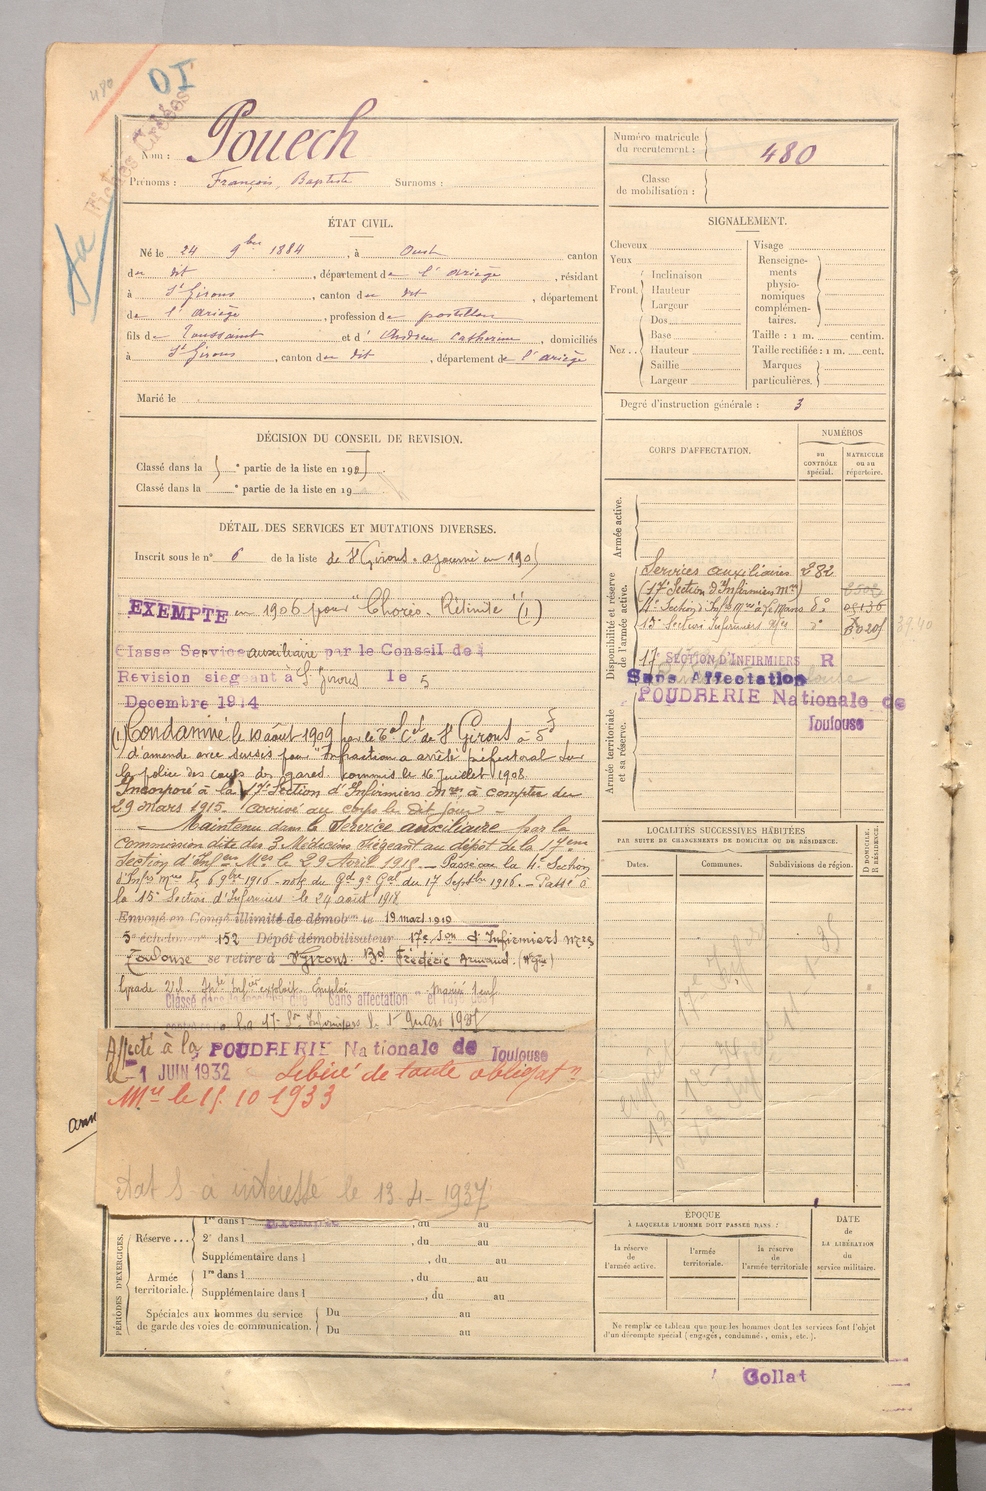 480
OI
Fiches Créées
Nom : Pouech
Prénoms : François, Baptiste Surnoms :
Numéro matricule du recrutement : 480
Classe de mobilisation :
ÉTAT CIVIL.
Né le 24 9bre 1884, à Oust canton
du dit, département de l'Ariège, résidant
à St Girons, canton du dit, département
de l'Ariège, profession de postillon
fils de Toussaint et d'Andrieu Catherine, domiciliés
à St Girons, canton du dit, département de l'Ariège
Marié le
SIGNALEMENT.
Cheveux
Yeux
Front. Inclinaison
Hauteur
Largeur
Nez .. Dos
Base
Hauteur
Saillie
Largeur
Visage
Renseignements physionomiques complémentaires.
Taille : 1 m. centim.
Taille rectifiée : 1 m. cent.
Marques particulières.
Degré d'instruction générale : 3
DÉCISION DU CONSEIL DE REVISION.
Classé dans la ° partie de la liste en 190
Classé dans la ° partie de la liste en 19
DÉTAIL DES SERVICES ET MUTATIONS DIVERSES.
Inscrit sous le n° 6 de la liste de St Girons. ajourné en 1905
EXEMPTÉ en 1906 pour "Choréo-Rétinite" (1)
Classé Service auxiliaire par le Conseil de
Revision siégeant à St Girons le 5
Decembre 1914
(1) Condamné le 10 août 1909 par le Tal Cel de St Girons à 5f
d'amende avec sursis pour "Infraction à arrêté préfectoral sur
la police des cours des gares" commis le 16 Juillet 1908.
Incorporé à la 17e Section d'Infirmiers Mres à compter du
29 mars 1915. arrivé au corps le dit jour
Maintenu dans le Service auxiliaire par la
commission dite des 3 Médecins siégeant au dépôt de la 17eme
Section d'Infers Mres le 29 Avril 1915. Passé à la 4e Section
d'Infrs Mres le 6 9bre 1916 - note du Gd Qr Gal du 17 Septbre 1916. - Passé à
la 15e Section d'Infirmiers le 24 août 1918
Envoyé en Congé illimité de démobon le 19 mars 1919
5e échelon no 152 Dépôt démobilisateur 17e Son d'Infirmiers Mres
Toulouse se retire à St Girons. Bd Frédéric Arnaud. (Ariège)
Classé dans "Sans affectation"
Affecté à la POUDRERIE Nationale de Toulouse
le 1 JUIN 1932 Libéré de toute obligaton
Mre le 15.10.1933
état S à intéressé le 13-4-1937
CORPS D'AFFECTATION.
NUMÉROS
au CONTRÔLE spécial.
MATRICULE ou au répertoire.
Armée active.
Disponibilité et réserve de l'armée active.
Services auxiliaires 282
(17e Section d'Infirmiers Mres)
4e Section d'Infrs Mres à Le Mans do
15e Section Infirmiers
17e SECTION D'INFIRMIERS R
Sans Affectation
POUDRERIE Nationale de
Toulouse
Armée territoriale et sa réserve.
LOCALITÉS SUCCESSIVES HABITÉES
PAR SUITE DE CHANGEMENTS DE DOMICILE OU DE RÉSIDENCE.
Dates.
Communes.
Subdivisions de région.
D DOMICILE. R RÉSIDENCE.
PÉRIODES D'EXERCICES.
Réserve ... 1re dans l , du au
2e dans l , du au
Supplémentaire dans l , du au
Armée territoriale. 1re dans l , du au
Supplémentaire dans l , du au
Spéciales aux hommes du service de garde des voies de communication. Du au
Du au
ÉPOQUE
À LAQUELLE L'HOMME DOIT PASSER DANS :
la réserve de l'armée active.
l'armée territoriale.
la réserve de l'armée territoriale
DATE de LA LIBÉRATION du service militaire.
Ne remplir ce tableau que pour les hommes dont les services font l'objet
d'un décompte spécial (engagés, condamnés, omis, etc.).
Collat